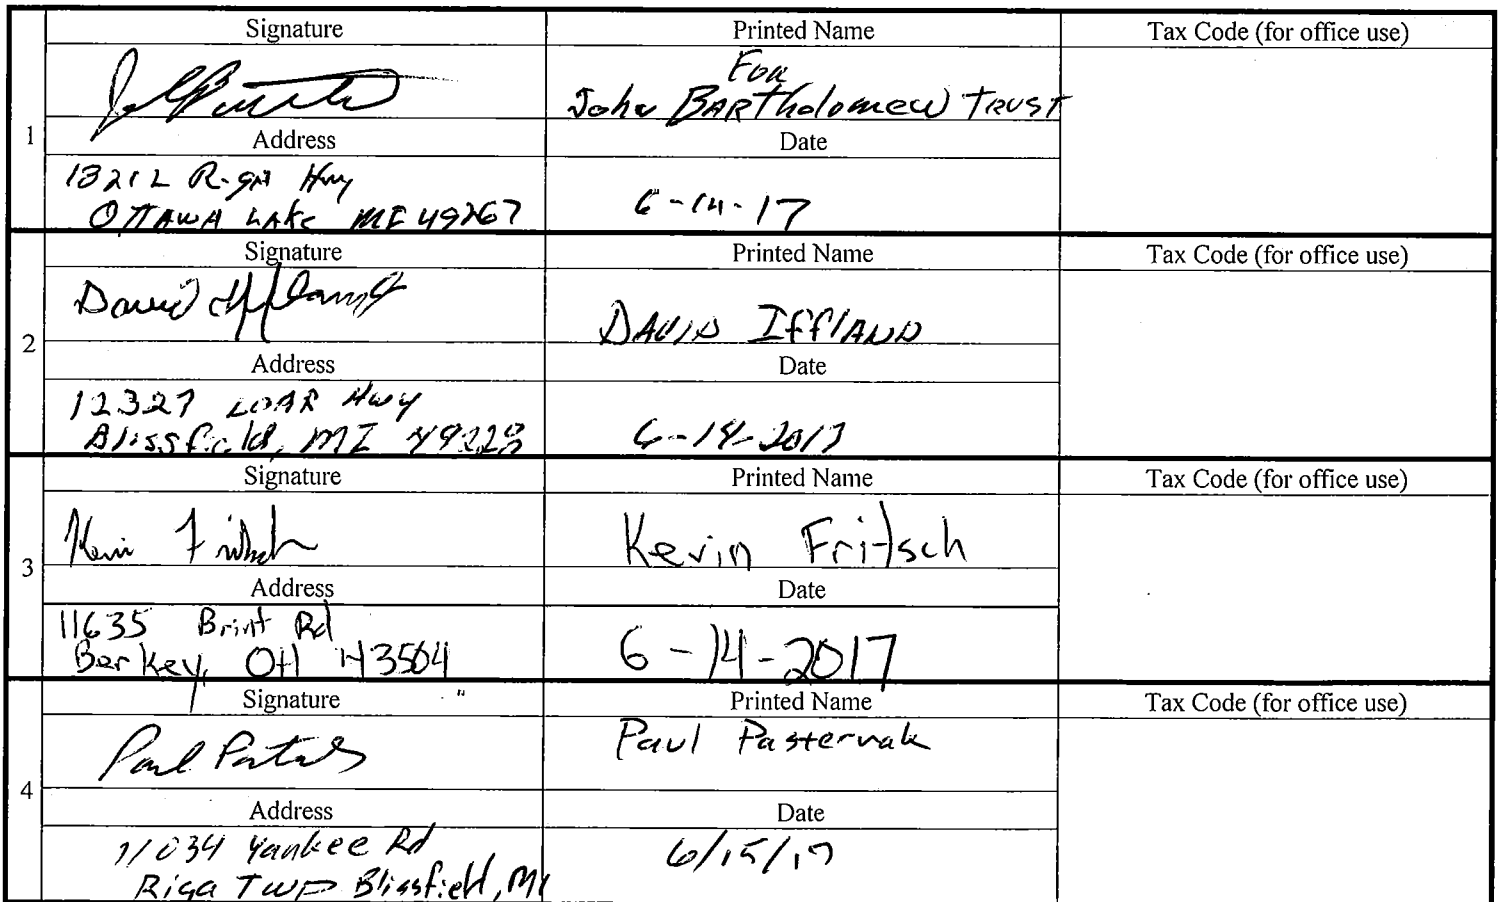 Signature Printed Name Tax Code (for office use)
For
John Bartholomew Trust
1
Address Date
13212 Riga Hwy
Ottawa Lake MI 49267 6-14-17
Signature Printed Name Tax Code (for office use)
David Iffland DAVID IffIAND
2
Address Date
12327 LOAR Hwy
Blissfield, MI 49228 6-14-2017
Signature Printed Name Tax Code (for office use)
Kevin Fritsch Kevin Fritsch
3
Address Date
11635 Brint Rd
Berkey, OH 43504 6-14-2017
Signature Printed Name Tax Code (for office use)
Paul Paul Pasternak
4
Address Date
11034 Yankee Rd 6/15/17
Riga TWP Blissfield, MI